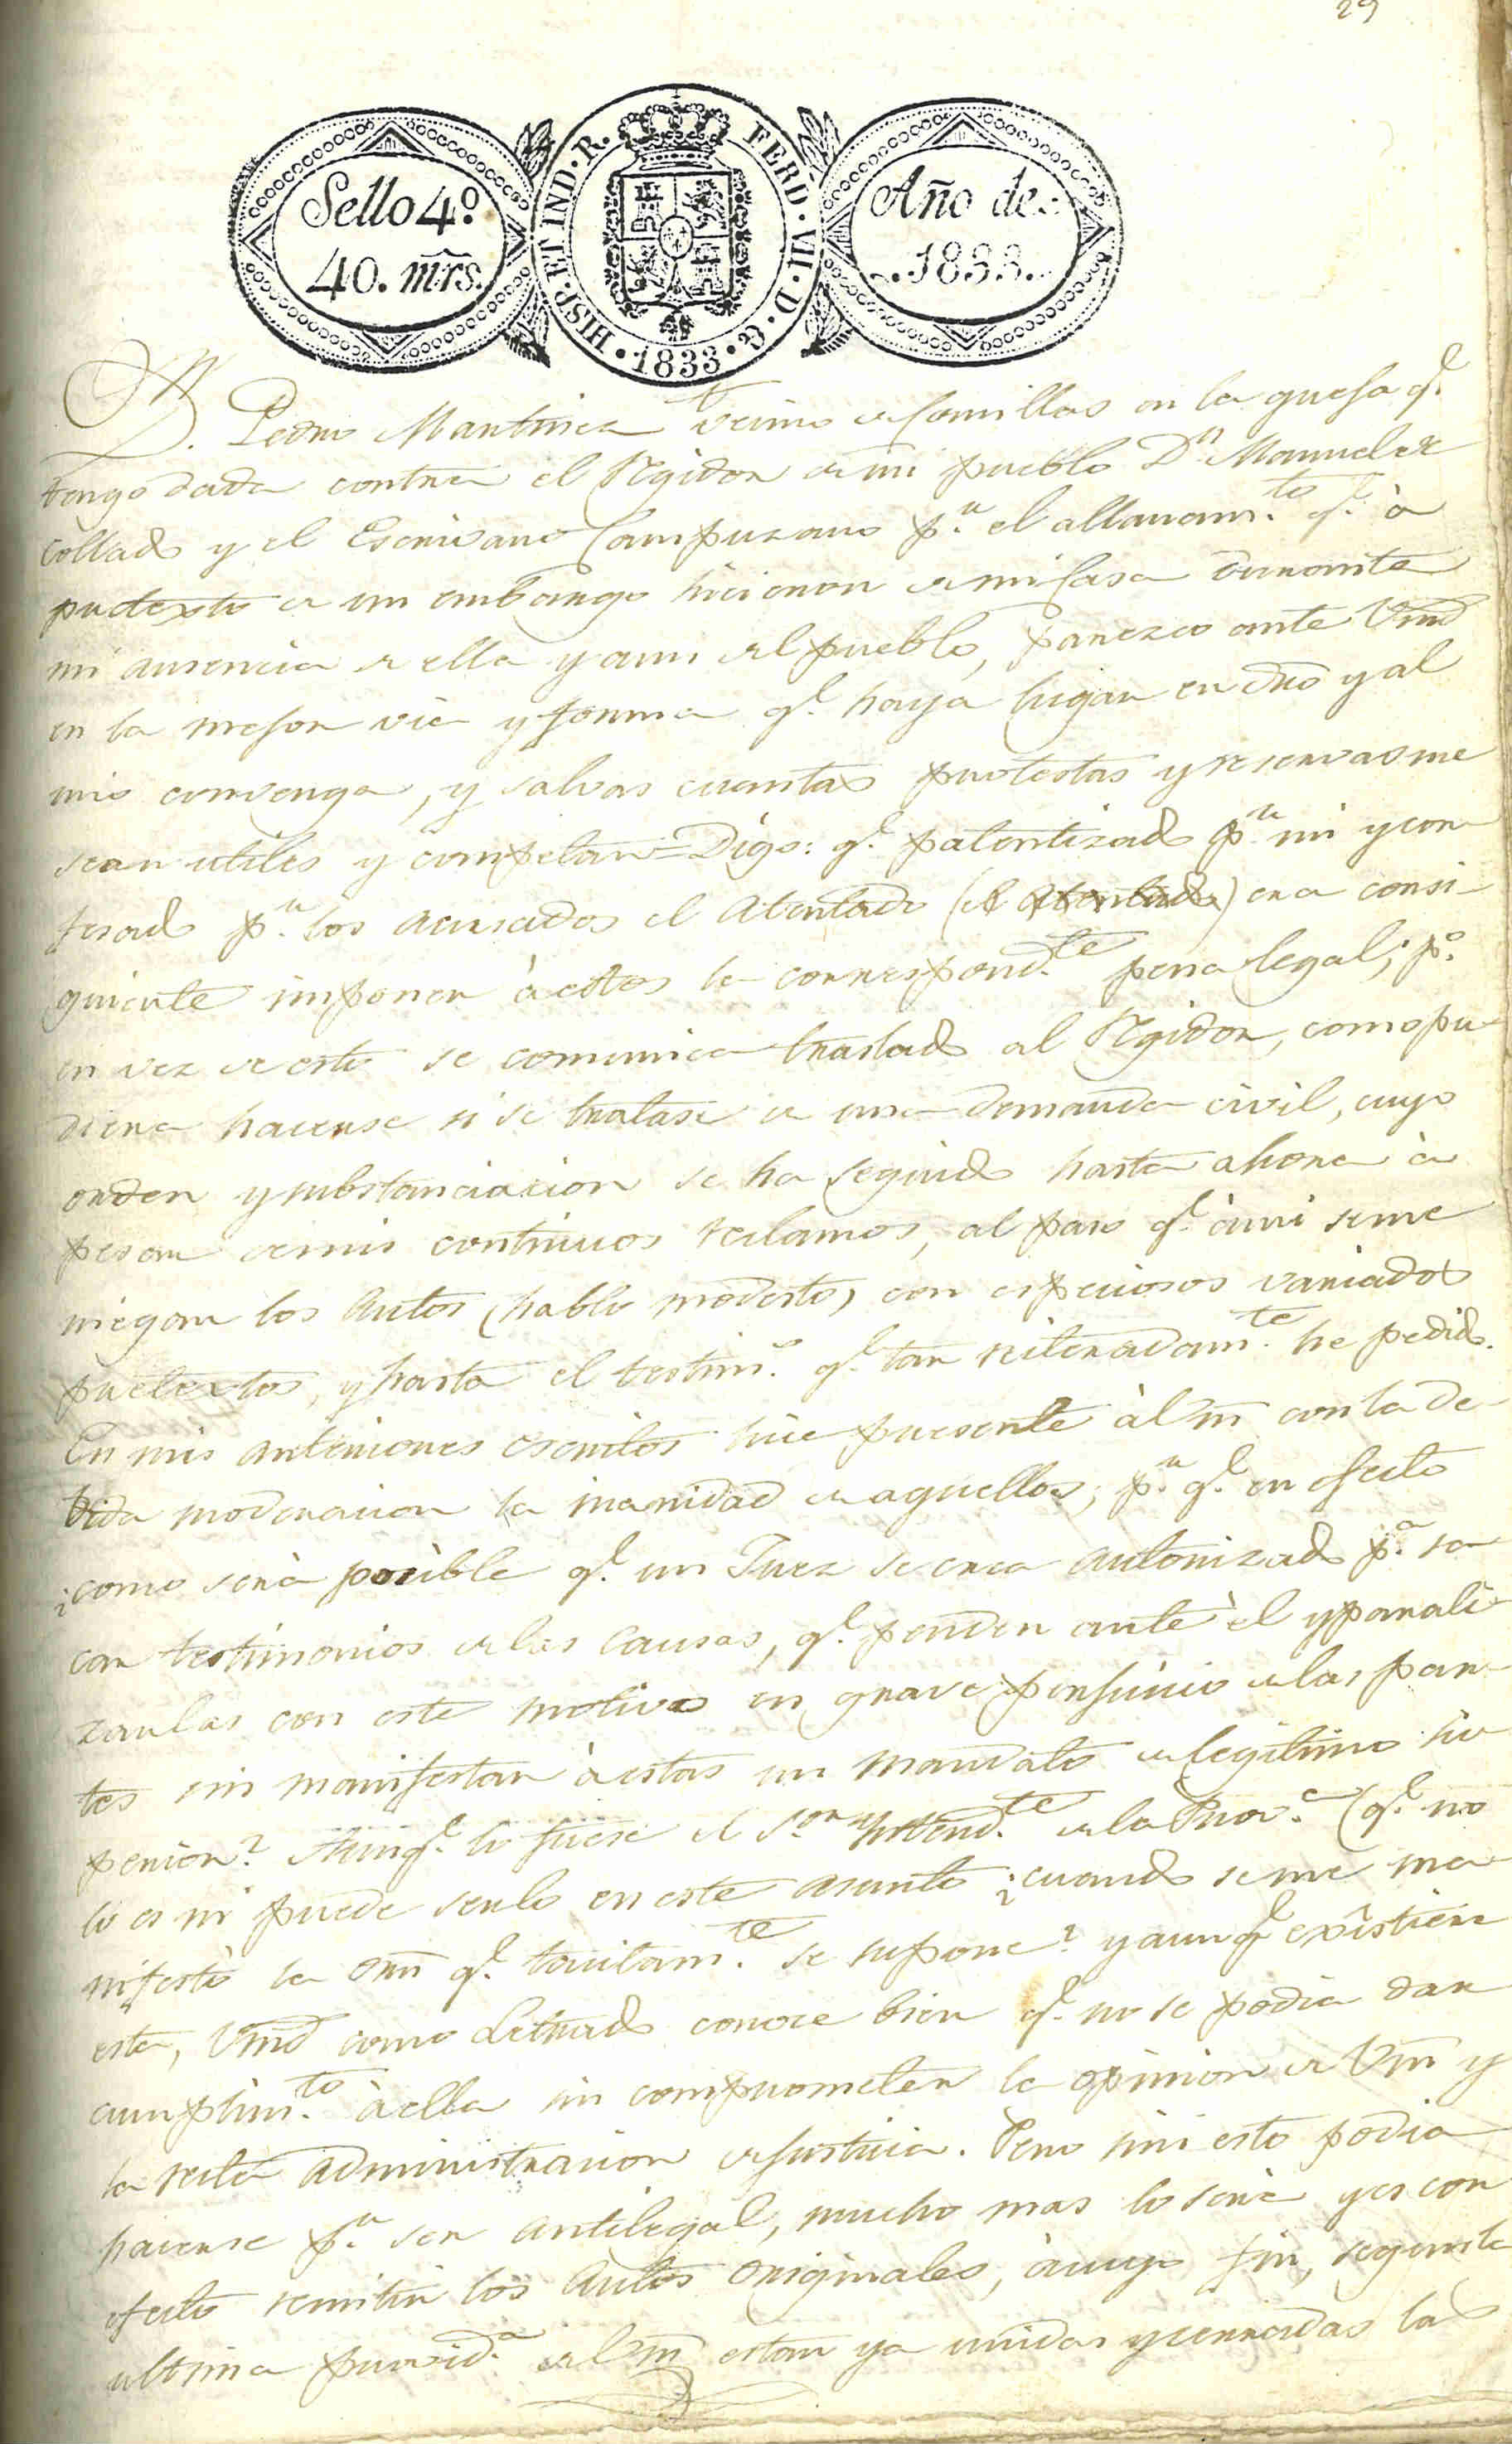 29
Sello 4º
40. mrs.
HISP · ET IND · R. FERD · VII · D · G · 1833
Año de
1833.
Dn. Pedro Martinez vecino de Comillas en la quefa q.e
tengo dada contra el Regidor de mi pueblo Dn. Manuel de
Collado y el Escrivano Campuzano p.r el allanam.to q.e à
pretexto de un embargo hicieron de mi Casa durante
mi ausencia de ella y aun del pueblo, parezco ante Vmd
en la mejor via y forma q.e haya lugar en dro y al
mio convenga, y salvas cuantas protestas y reservas me
sean utiles y competan = Digo: q.e patentizado p.r mi y con
fesado p.r los acusados el atentado (el atentado) era consi-
guiente imponer à estos la correspond.te pena legal; p.o
en vez de esto se comunica traslado al Regidor, como pu-
diera hacerse si se tratase de una demanda civil, cuyo
orden y substanciacion se ha seguido hasta ahora à
pesar de mis continuos reclamos, al paso q.e à mi se me
niegan los autos (hablo modesto) con especiosos variados
pretextos, y hasta el testim.o q.e tan reiteradam.te he pedido.
En mis anteriores escritos hice presente à Vm con la de-
bida moderacion la inanidad de aquellos; p.r q.e en efecto
¿como serà posible q.e un Juez se crea autorizado p.a sa
car testimonios de las Causas, q.e penden ante èl y parali-
zarlas con este motivo en grave perjuicio de las par-
tes sin manifestar à estas un mandato de legitimo su-
perior? Aunq.e lo fuese el S.or Yntend.te de la Prov.a (q.e no
lo es ni puede serlo en este asunto ¿cuando se me ma-
nifestò la orn q.e tacitam.te se supone? y aunq.e existiera
esta, Vmd como Letrado conoce bien q.e no se podia dar
cumplim.to à ella sin comprometer la opinion de Vm y
la recta administracion de Justicia. Pero si ni esto podia
hacerse p.r ser antilegal, mucho mas lo seria y es con
efecto remitir los autos originales, à cuyo fin, segun la
ultima provid.a de Vm estan ya unidas y cerradas las